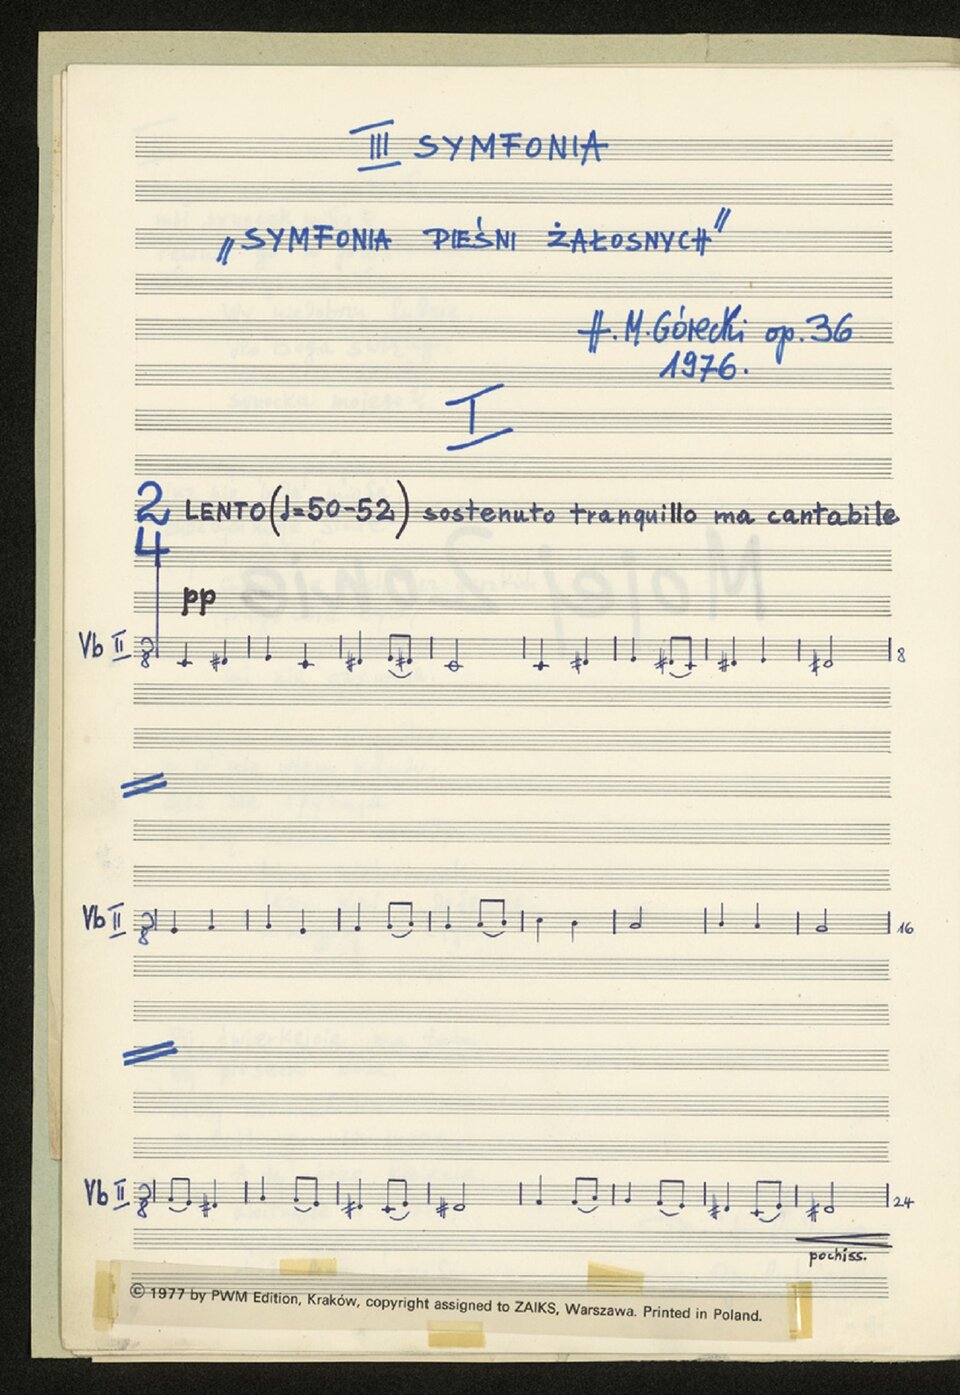 III SYMFONIA
„SYMFONIA PIEŚNI ŻAŁOSNYCH”
H. M. Górecki op. 36
1976.
I
2
4
LENTO (♩=50-52) sostenuto tranquillo ma cantabile
pp
Vb II
8
8
Vb II
8
16
Vb II
8
24
pochiss.
© 1977 by PWM Edition, Kraków, copyright assigned to ZAIKS, Warszawa. Printed in Poland.